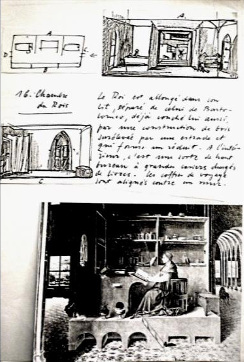 A
D
C
B
A
16. Chambre
du Rois
C
Le Roi est allongé dans son
lit, séparé de celui de Barto-
lomeo, déjà couché lui aussi,
par une construction de bois
surélevée par une estrade et
qui forme un réduit. A l'inté-
rieur, c'est une sorte de haut
bureau à grandes casiers chargés
de livres. Les coffres de voyage
sont alignés contre un mur.